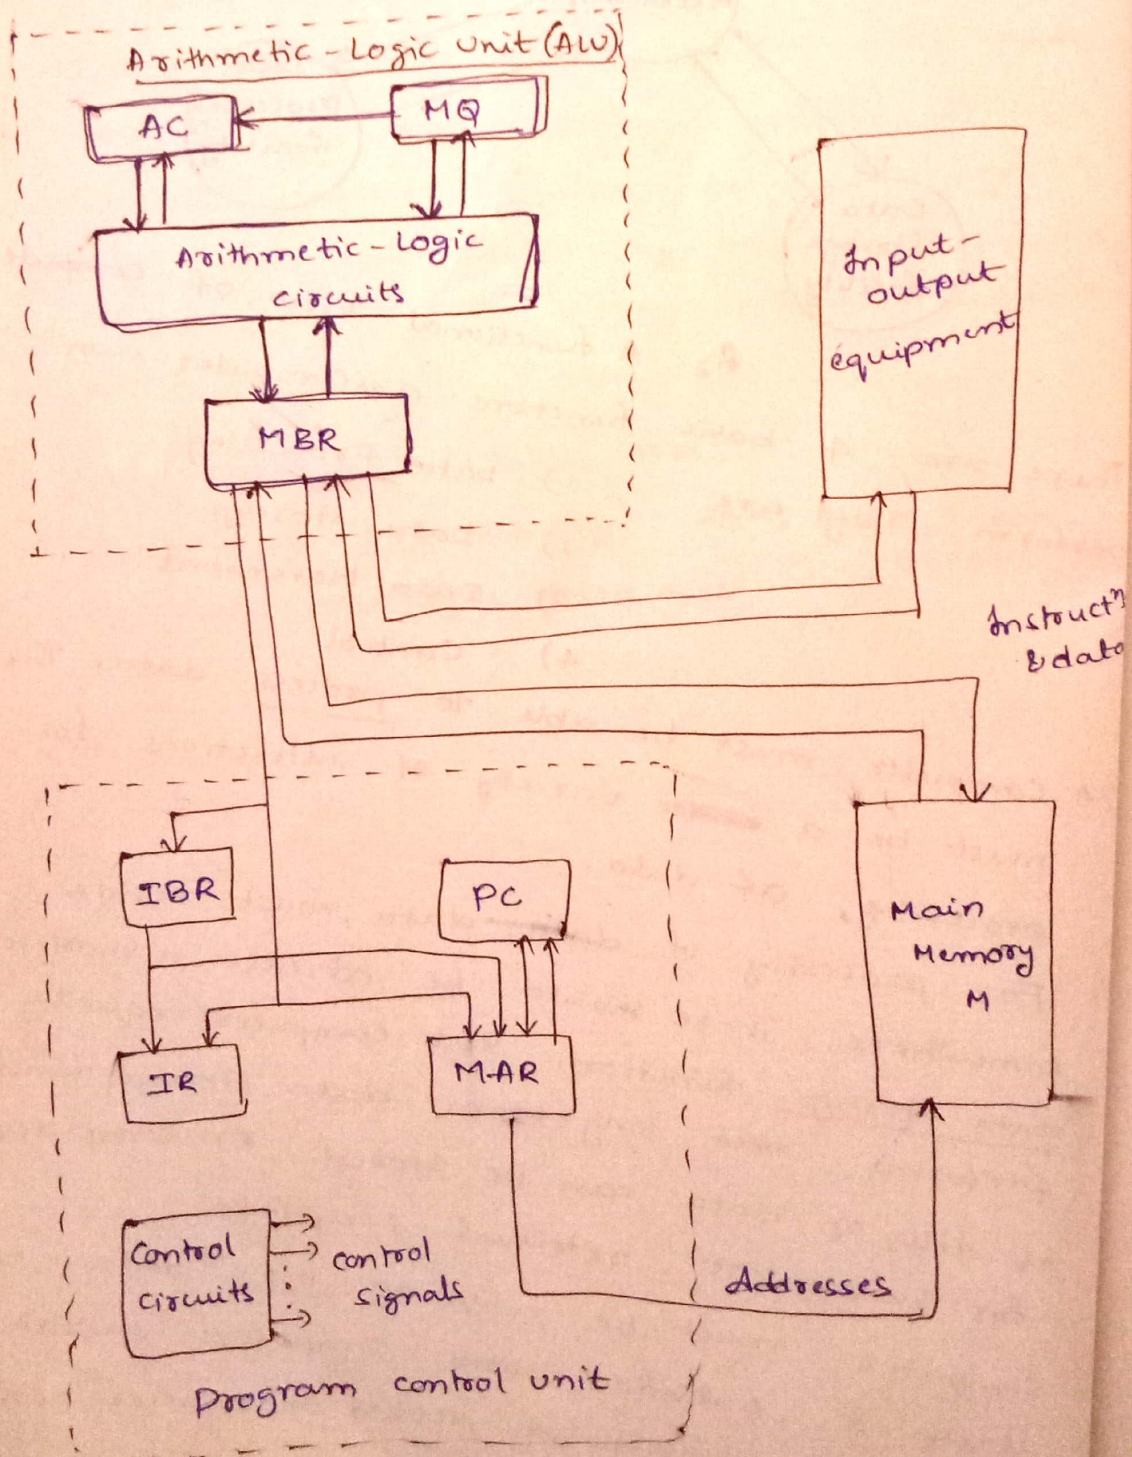 Arithmetic - Logic unit (ALU)
AC
MQ
Arithmetic - Logic
circuits
MBR
Input -
output
equipment
Instructn
& data
IBR
PC
Main
Memory
M
IR
MAR
Control
circuits
control
signals
Addresses
Program control unit